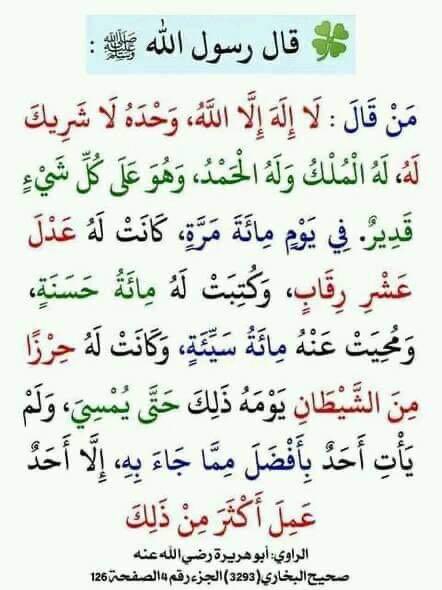 قال رسول الله ﷺ :
مَنْ قَالَ : لَا إِلَهَ إِلَّا اللَّهُ، وَحْدَهُ لَا شَرِيكَ
لَهُ، لَهُ الْمُلْكُ وَلَهُ الْحَمْدُ، وَهُوَ عَلَى كُلِّ شَيْءٍ
قَدِيرٌ. فِي يَوْمٍ مِائَةَ مَرَّةٍ، كَانَتْ لَهُ عَدْلَ
عَشْرِ رِقَابٍ، وَكُتِبَتْ لَهُ مِائَةُ حَسَنَةٍ،
وَمُحِيَتْ عَنْهُ مِائَةُ سَيِّئَةٍ، وَكَانَتْ لَهُ حِرْزًا
مِنَ الشَّيْطَانِ يَوْمَهُ ذَلِكَ حَتَّى يُمْسِيَ، وَلَمْ
يَأْتِ أَحَدٌ بِأَفْضَلَ مِمَّا جَاءَ بِهِ، إِلَّا أَحَدٌ
عَمِلَ أَكْثَرَ مِنْ ذَلِكَ
الراوي: أبو هريرة رضي الله عنه
صحيح البخاري (3293) الجزء رقم 4 الصفحة 126